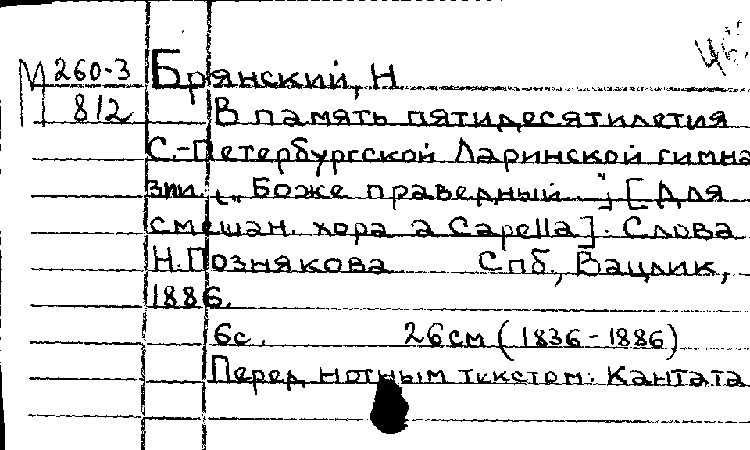 М 260-3 Брянский, Н
812 В память пятидесятилетия
С.-Петербургской Ларинской гимна
зии [„Боже праведный"] [Для
смешан. хора a Capella]. Слова
Н. Познякова Спб., Вацлик,
1886.
6с. 26см (1836-1886)
Перед нотным текстом: Кантата